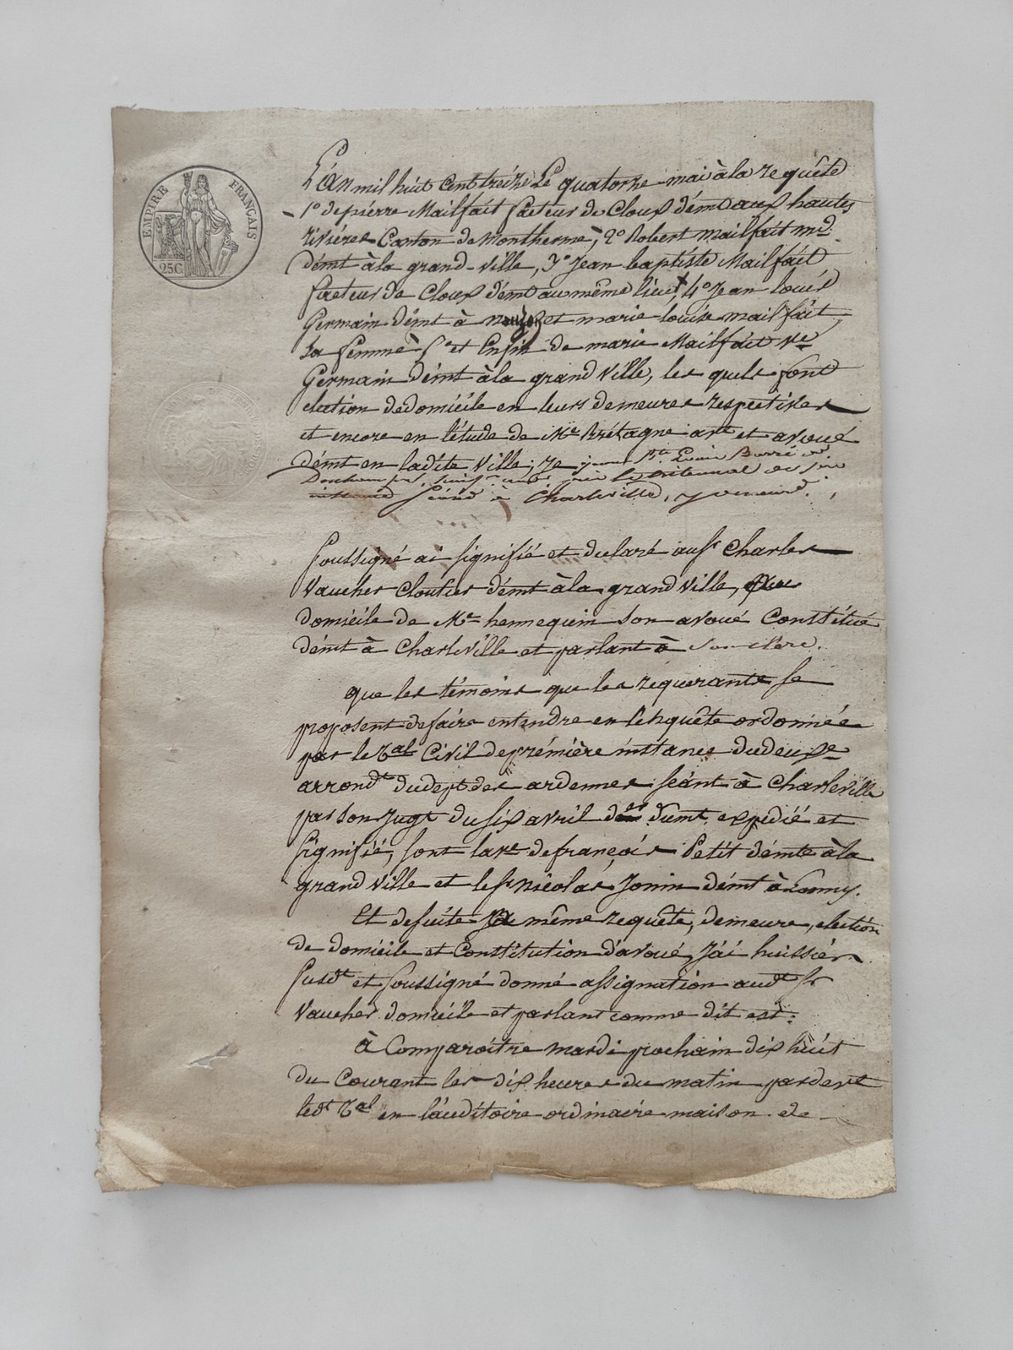 EMPIRE FRANÇAIS
25C
L'An mil huit Cent treize Le quatorze mai à la requête
1º de pierre Mailfait facteur de Cloux démt aux hautes
rivières Canton de Montherme, 2º Robert mailfait md
démt à la grand-ville, 3º Jean baptiste Mailfait
facteur de Cloux démt au même lieu, 4º Jean Louis
Germain démt à nouzon et marie louise mailfait
sa femme, 5º et Enfin de marie Mailfait Ve
Germain démt à la grandville, les quels font
election de domicile en leurs demeures respectives
et encore en l'étude de Me Brétagne ave et avoué
démt en ladite ville; Je
tribunal de
séant à Charleville, y demeurt.
soussigné ai signifié et declaré au sr Charles
Vaucher Cloutier démt à la grandville, au
domicile de Me hennequin son avoué Constitué
démt à Charleville et parlant à son clerc.
que les témoins que les requerants se
proposent de faire entendre en l'enquête ordonnée
par le tal Civil de prémière instance du deuxe
arrondt du dept des ardennes séant à Charleville
par son Jugt du six avril der dumt expédié et
signifié, sont la ve de françois Petit démte à la
grandville et le sr Nicolas Jonin démt à
Et de suite Ja même requête, demeure, election
de domicile et Constitution d'avoué, J'ai huissier
susdt et soussigné donné assignation audt sr
Vaucher domicile et parlant comme dit est:
à Comparoitre mardi prochain dix huit
du Courant les dix heures du matin pardevt
ledt tal en l'auditoire ordinaire maison de